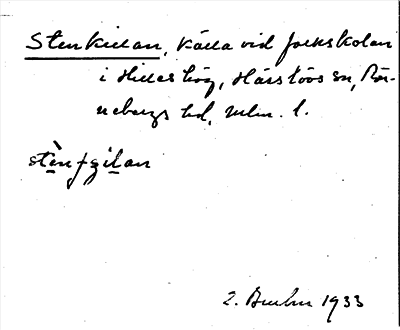 Stenkillan, källa vid folkskolan
i Hilleshög, Härslövs sn, Rön-
nebergs hd, Mlm. l.
stèn ʃɩlan
2. 1933